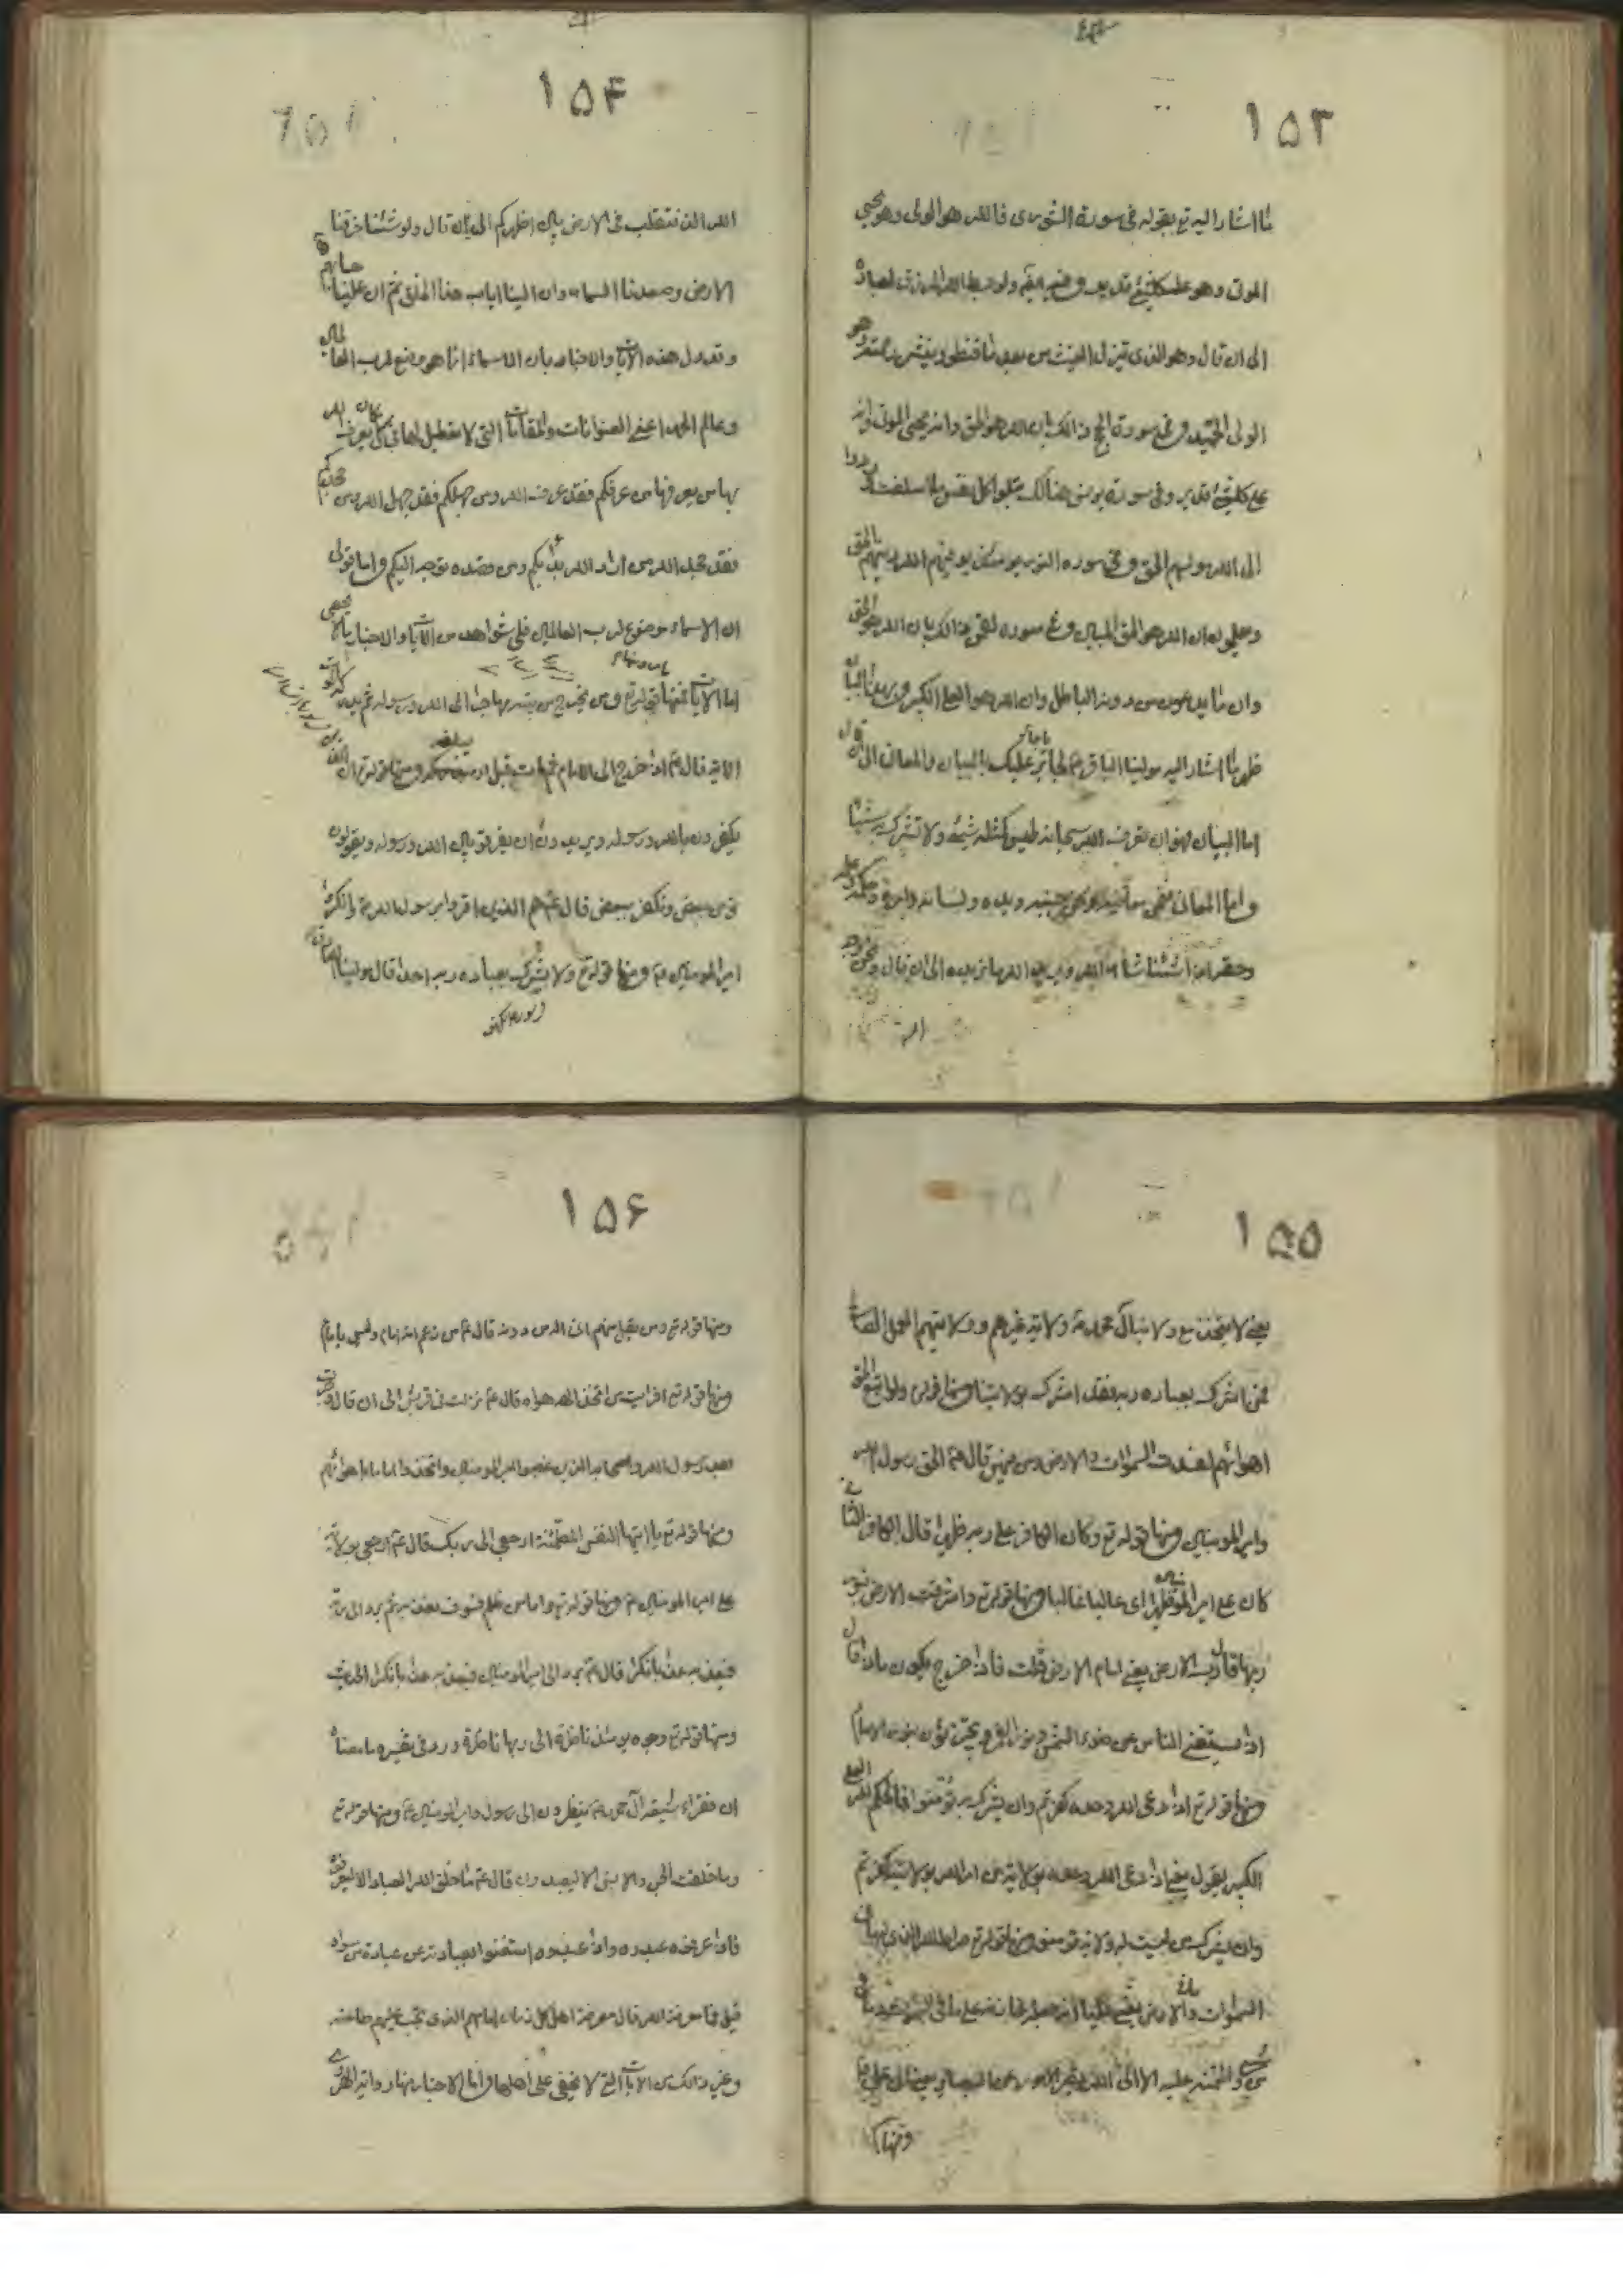 ١٥٣
ما اشار اليه تع بقوله فى سورة الشورى فالله هو الولى وهو يحيى
الموتى وهو على كلشئ قدير وفيه ايضا ولو بسط الله الرزق لعباده
الى ان قال وهو الذى ينزل الغيث من بعد ما قنطوا وينشر رحمته وهو
الولى الحميد وفى سورة الحج ذالك بان الله هو الحق وانه يحيى الموتى وانه
على كلشئ قدير وفى سورة يونس هنالك تبلوا كل نفس ما اسلفت وردوا
الى الله موليهم الحق وفى سورة النور يومئذ يوفيهم الله دينهم الحق
ويعلمون ان الله هو الحق المبين وفى سورة لقمن ذالك بان الله هو الحق
وان ما يدعون من دونه الباطل وان الله هو العلى الكبير
اشار اليه مولينا الباقر ع يا جابر عليك بالبيان والمعانى الى ان قال
اما البيان فهو ان تعرف الله سبحانه ليس كمثله شئ ولا تشرك به شيئا
واما المعانى فنحن معانيه ونحن جنبه ويده ولسانه وامره وحكمه وعلمه
وحقه اذا شئنا شاء الله ويريد الله ما نريده الى ان قال ونحن وجه
الله
١٥۴
الله الذى نتقلب فى الارض بين اظهركم الى ان قال ولو شئنا خرقنا
الارض وصعدنا السماء وان الينا اياب هذا الخلق ثم ان علينا حسابهم
وقد دل هذه الايات والاخبار بان الاسماء انما هو موضوع لرب العالمين
وعالم الحمد اعنى العنوانات والمقامات التى لا تعطيل لها فى كل مكان يعرف الله
بها من يعرفها من عرفكم فقد عرف الله ومن جهلكم فقد جهل الله ومن
فقد الله من اراد الله بدأ بكم ومن قصده توجه اليكم واما قولى
ان الاسماء موضوع لرب العالمين فلى شواهد من الايات والاخبار ما لا يحصى
اما الايات فمنها قوله تع ومن يخرج من بيته مهاجرا الى الله ورسوله ثم يدركه الموت
الاية قال ع اذا خرج الى الامام ثم مات قبل ان يبلغه ومنها قوله تع ان الذين
يكفرون بالله ورسوله ويريدون ان يفرقوا بين الله ورسوله ويقولون
نؤمن ببعض ونكفر ببعض قال ع هم الذين اقروا برسول الله ص وانكروا
امير المومنين ع ومنها قوله تع ولا يشرك بعبادة ربه احدا قال مولينا الصادق
١٥٥
يعنى لا يتخذ مع ولاية آل محمد ص ولاية غيرهم وولايتهم العمل الصالح
فمن اشرك بعبادة ربه فقد اشرك بولايتنا ومنها قوله ولو اتبع الحق
اهوائهم لفسدت السموات والارض ومن فيهن قال ع الحق رسول الله
وامير المومنين ومنها قوله تع وكان الكافر على ربه ظهيرا قال الكافر الثانى
كان على امير المومنين ظهيرا اى غالبا ومنها قوله تع واشرقت الارض بنور
ربها قال رب الارض يعنى امام الارض قلت فاذا خرج يكون ماذا قال
اذا يستغنى الناس عن ضوء الشمس ونور القمر ويجتزون بنور الامام
ومنها قوله تع اذا دعى الله وحده كفرتم وان يشرك به تؤمنوا فالحكم لله العلى
الكبير يقول يعنى اذا دعى الله وحده بولاية من امر الله بولايته كفرتم
وان يشرك من ليست له ولاية تومنوا ومنها قوله تع صراط الله الذى له ما فى
السموات والارض يعنى عليا انه جعله خازنه على ما فى السموات وما فى الارض
من شئ وائتمنه عليه الا الى الله تصير الامور
ومنها
١٥۶
ومنها قوله تع ومن يقل منهم انى اله من دونه قال ع من زعم انه امام وليس بامام
ومنها قوله تع افرايت من اتخذ الهه هواه قال ع نزلت فى قريش الى ان قال وجرت
بعد رسول الله واصحابه الذين غصبوا امير المومنين واتخذوا اماما باهوائهم
ومنها قوله تع يا ايتها النفس المطمئنة ارجعى الى ربك قال ع ارجعى بولاية
على امير المومنين ع ومنها قوله تع واما من ظلم فسوف نعذبه ثم يرد الى ربه
فيعذبه عذابا نكرا قال ع يرد الى امير المومنين فيعذبه عذابا نكرا الحديث
ومنها قوله تع وجوه يومئذ ناضرة الى ربها ناظرة ورد فى تفسيره ما معناه
ان فقراء شيعة آل محمد ع ينظرون الى رسول وامير المومنين ع ومنها قوله تع
وما خلقت الجن والانس الا ليعبدون قال ع ما خلق الله العباد الا ليعرفوه
فاذا عرفوه عبدوه واذا عبدوه استغنوا بعبادته عن عبادة من سواه
قيل فما معرفة الله قال معرفة اهل كل زمان امامهم الذى تجب عليهم طاعته
وغير ذالك من الايات التى لا تخفى على اهلها واما الاخبار فمنها رواية الهروى